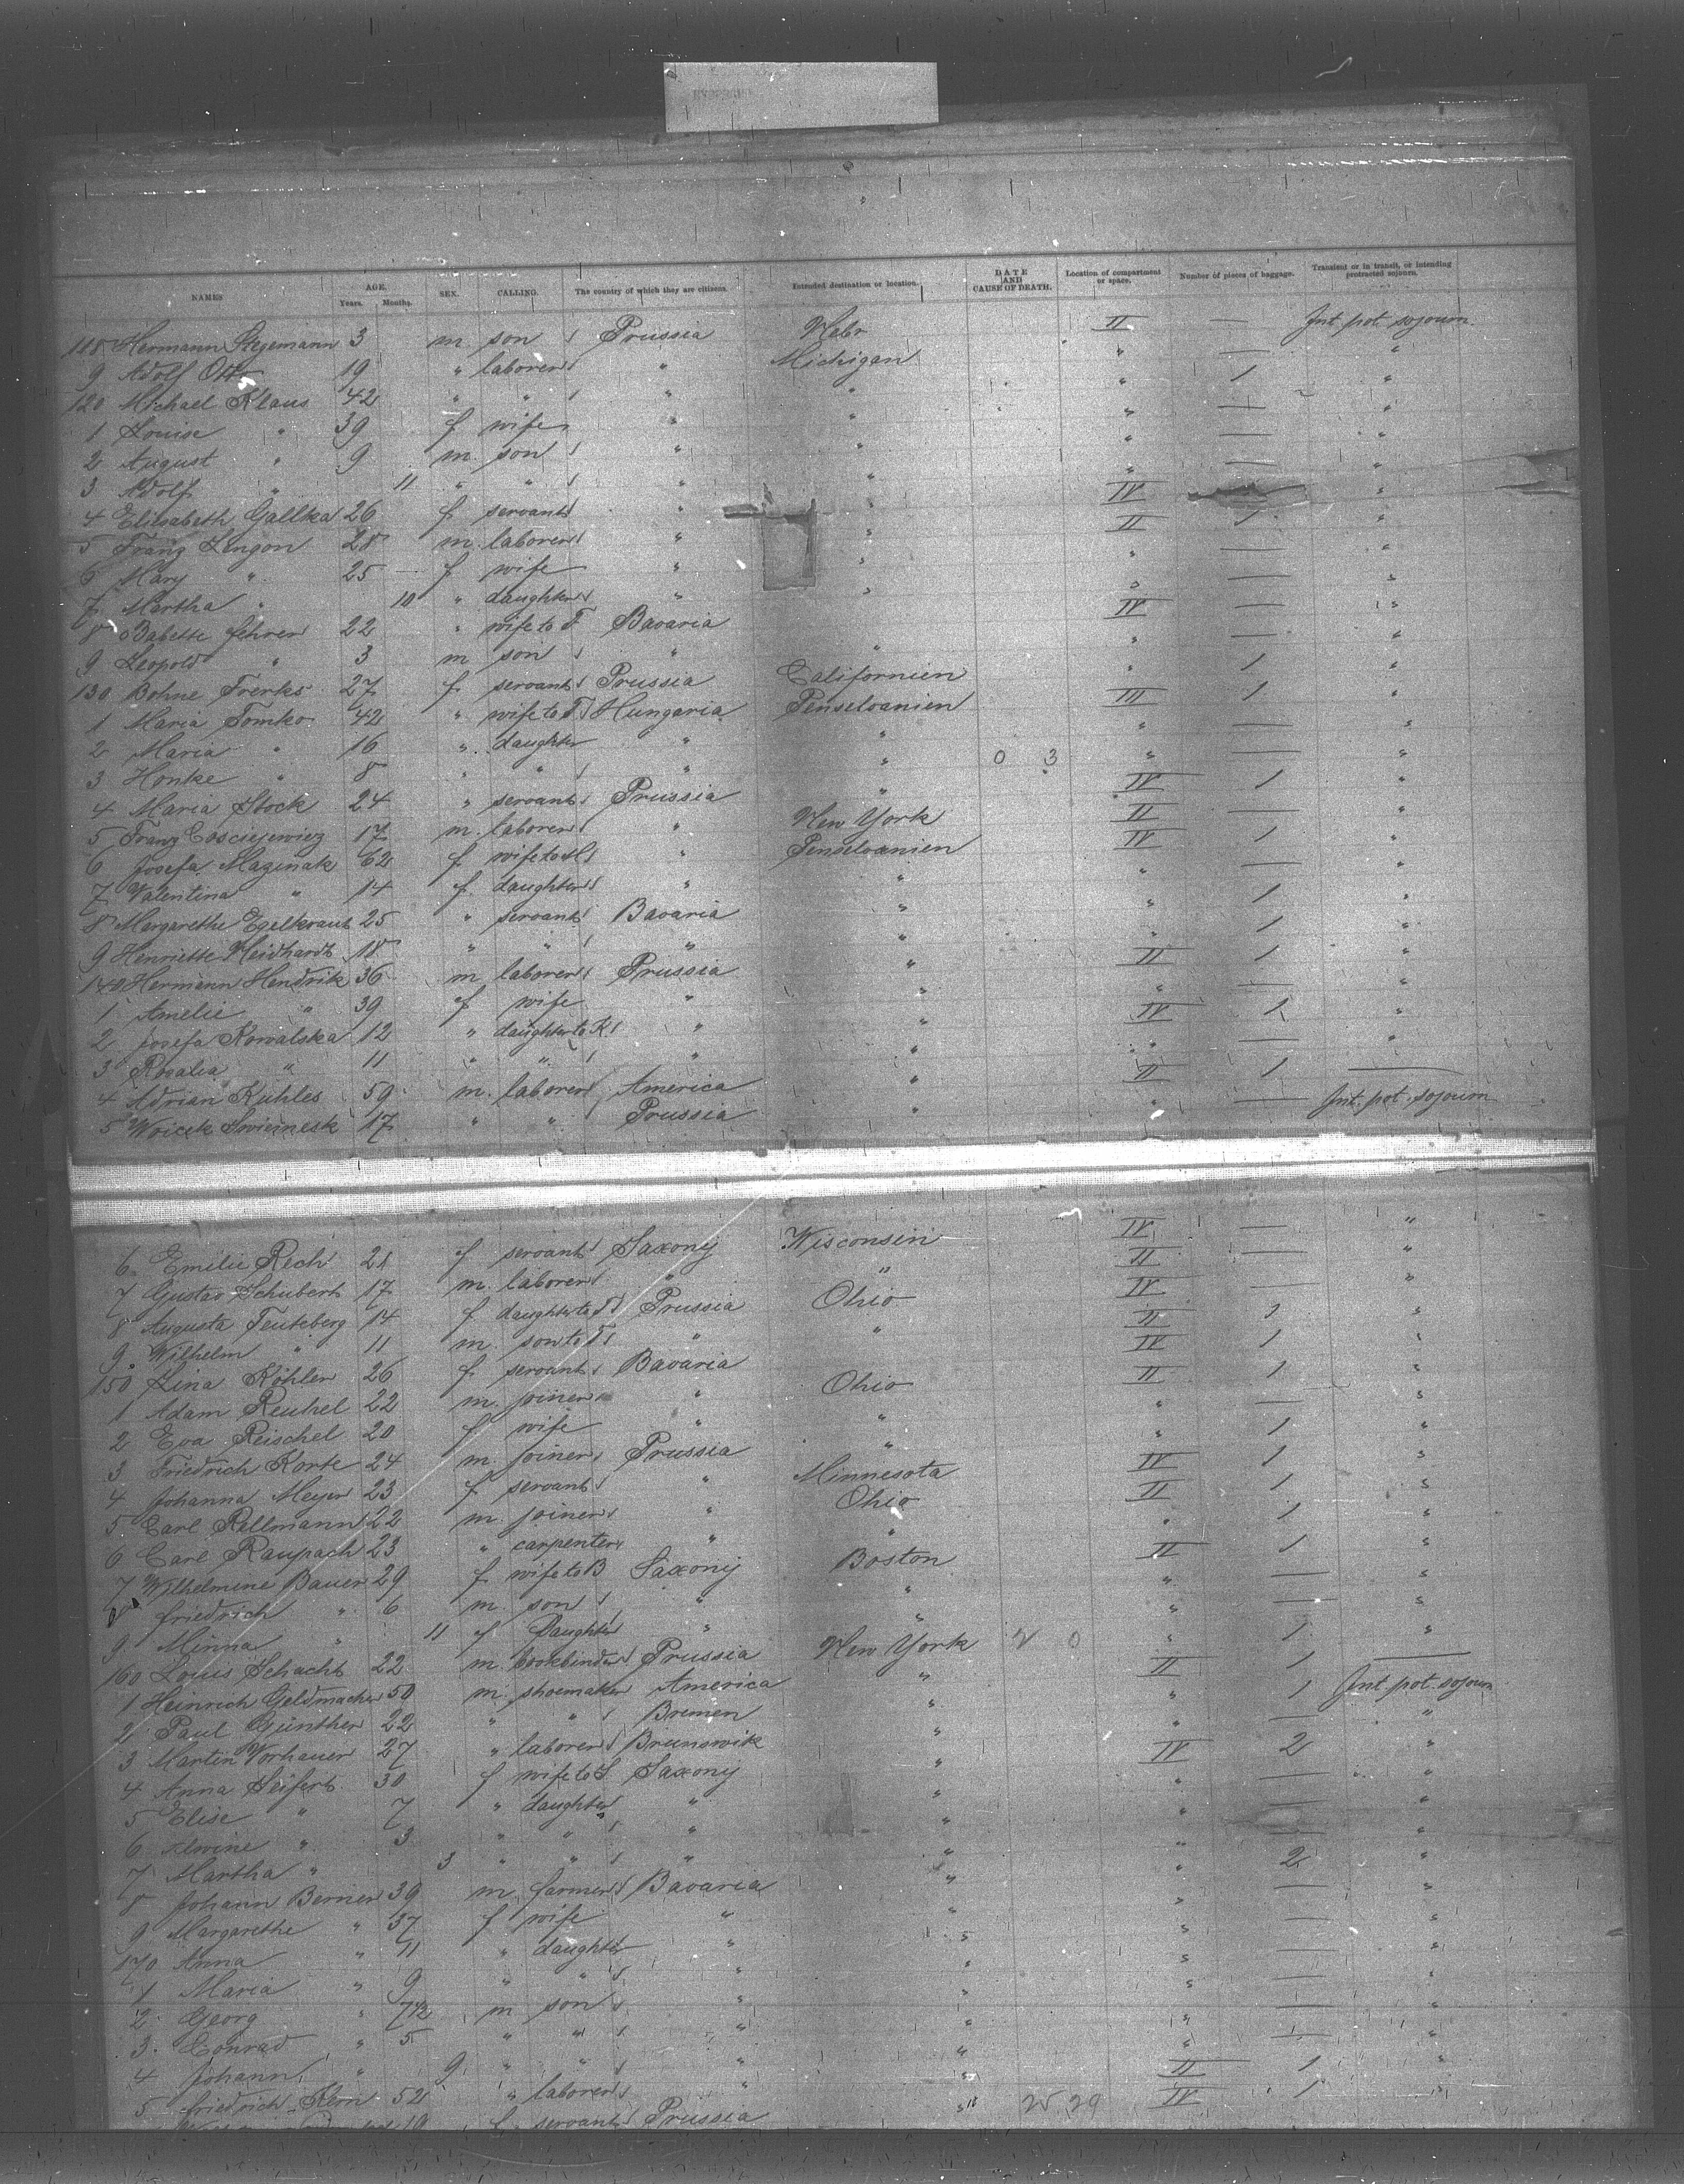 NAMES AGE. Years. Months. SEX. CALLING. The country of which they are citizens. Intended destination or location. DATE AND CAUSE OF DEATH. Location of compartment or space. Number of pieces of baggage. Transient or in transit, or intending protracted sojourn.
118 Hermann Stegemann 3 m. son Prussia Nebr II — Int. pot. sojourn
9 Adolf Ott 19 " laborer " Michigan " — "
120 Michael Klaus 42 " " " " " 1 "
1 Louise " 39 f wife " " " — "
2 August " 9 m. son " " " — "
3 Adolf " 11 " " " " " — "
4 Elisabeth Gallka 26 f servant " " IV "
5 Franz Lengon 28 m. laborer " " II 1 "
6 Mary " 25 f wife " " " — "
7 Martha " 10 " daughter " " " — "
8 Babette Fehrer 22 " wife to F Bavaria IV — "
9 Leopold " 3 m son " " " — "
130 Bohne Frerks 27 f servant Prussia Californien " 1 "
1 Maria Tomko 42 " wife to T Hungaria Penselvanien III 1 "
2 Maria " 16 " daughter " " " — "
3 Honke " 8 " " " " 0 3 " — "
4 Maria Stock 24 " servant Prussia " IV 1 "
5 Franz 17 m. laborer " New York II — "
6 Josefa Mazinak 62 f wife to M " Penselvanien IV 1 "
7 Valentina " 14 f daughter " " " — "
8 Margarethe Egelkraut 25 " servant Bavaria " " 1 "
9 Henriette Neidhardt 18 " " " " " 1 "
140 Hermann Hendrik 36 m laborer Prussia " II 1 "
1 Amelie " 39 f wife " " " — "
2 Josefa Kowalska 12 " daughter to K " " IV 1 "
3 Rosalia " 11 " " " " " — "
4 Adrian Kühles 59 m. laborer America " II 1 —
5 Woicek 17 " " Prussia " " — Int. pot. sojourn
6 Emilie Rech 21 f servant Saxony Wisconsin IV — "
7 Gustav Schubert 17 m. laborer " " II — "
8 Augusta Teuteberg 14 f daughter to T Prussia Ohio IV — "
9 Wilhelm " 11 m. son to T " " II 1 "
150 Lina Köhler 26 f servant Bavaria IV 1 "
1 Adam Reuhel 22 m. joiner " Ohio II 1 "
2 Eva Reischel 20 f wife " " " — "
3 Friedrich Korte 24 m. joiner Prussia " " 1 "
4 Johanna Meyer 23 f servant " Minnesota IV 1 "
5 Carl Rellmann 22 m. joiner " Ohio II 1 "
6 Carl Raupach 23 " carpenter " " " 1 "
7 Wilhelmine Bauer 29 f wife to B Saxony Boston II 1 "
8 Friedrich " 6 m. son " " " — "
9 Minna " 11 f Daughter " " " — "
160 Louis Schacht 22 m. bookbinder Prussia New York " 1 "
1 Heinrich Geldmacher 50 m. shoemaker America " II 1 —
2 Paul Günther 22 " " Bremen " " 1 Int. pot. sojourn
3 Martin Vorhauer 27 " laborer Brunswik " " — "
4 Anna Seifert 30 f wife to S Saxony " IV 2 "
5 Elise " 7 " daughter " " " — "
6 Alwine " 3 " " " " " — "
7 Martha " 3 " " " " " — "
8 Johann Berner 39 m farmer Bavaria " " 2 "
9 Margarethe " 37 f wife " " " — "
170 Anna " 11 " daughter " " " — "
1 Maria " 9 " " " " " — "
2 Georg " 7½ m son " " " — "
3 Conrad " 5 " " " " " — "
4 Johann " 9 " " " " " — "
5 Friedrich Kern 52 " laborer " " II 1 "
19 f servant Prussia " 25 29 IV 1 "